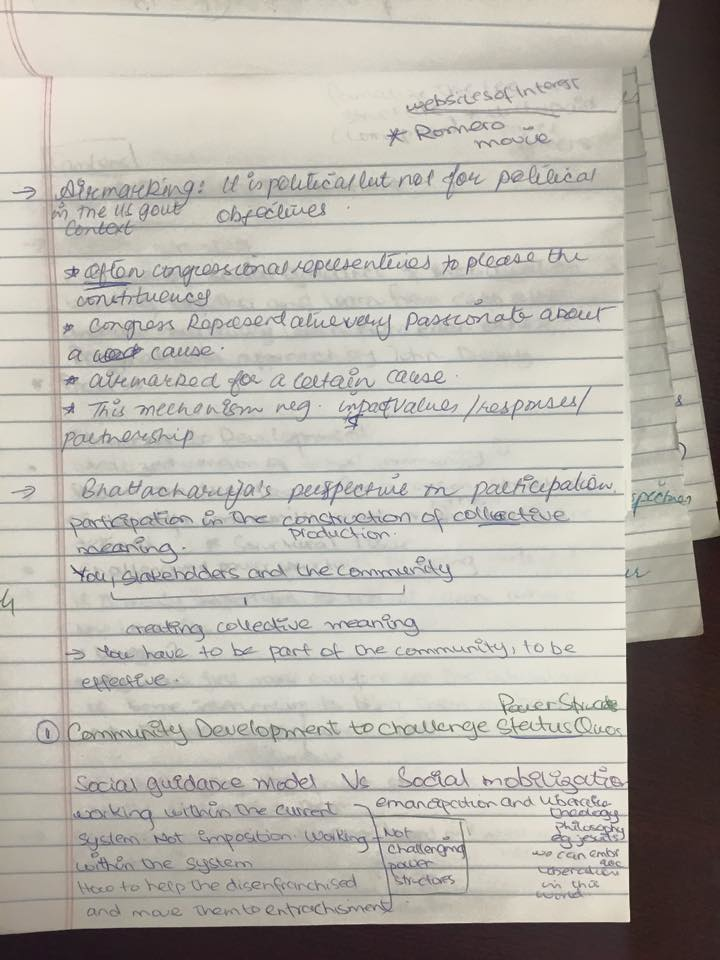 websites of Interest
* Romero
movie
→ Airmarking: It is political but not for political
in the US govt objectives.
Context
* often congressional representatives to please the
constituency
* Congress Representative very passionate about
a cause.
* airmarked for a certain cause.
* This mechanism neg. impact values/responses/
partnership
→ Bhattacharyya's perspective on participation
participation in the construction of collective
production.
meaning.
You, stakeholders and the community
creating collective meaning
→ You have to be part of the community, to be
effective.
Power Structure
① Community Development to challenge Status Quos
Social guidance model Vs Social mobilization
working within the current
system. Not imposition. Working
within the system
How to help the disenfranchised
and move them to entrachisment
Not
challenging
power
structures
emancipation and Liberation
theology
philosophy
eg jesuits
we can embr
ace
liberation
in this
world